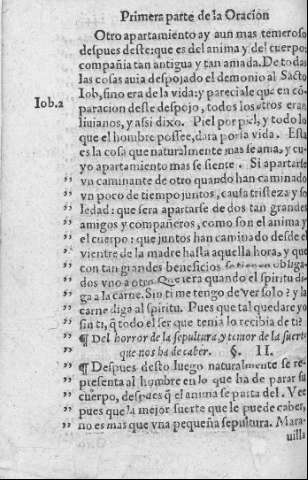 Primera parte de la Oracion
Otro apartamiento ay aun mas temeroso
despues deste: que es del anima y del cuerpo
compañia tan antigua y tan amada. De todas
las cosas auia despojado el demonio al Sācto
Iob, sino era de la vida: y pareciale que en cō
Iob.2
paracion deste despojo, todos los otros eran
liuianos, y assi dixo. Piel por piel, y todo lo
que el hombre possee, dara por la vida. Esta
es la cosa que naturalmente mas se ama, y cu-
yo apartamiento mas se siente. Si apartarse
” vn caminante de otro quando han caminado
” vn poco de tiempo juntos, causa tristeza y so
” ledad: que sera apartarse de dos tan grandes
” amigos y compañeros, como son el anima y
” el cuerpo: que juntos han caminado desde el
” vientre de la madre hasta aquella hora, y que
” con tan grandes beneficios obliga-
” dos vno a otro. Que sera quando el spiritu di-
” ga a la carne. Sin ti me tengo de ver solo? y la
” carne diga al spiritu. Pues que tal quedare yo
” sin ti, q̃ todo el ser que tenia lo recibia de ti?
” ¶ Del horror de la sepultura y temor de la suerte
que nos ha de caber. §. II.
” ¶ Despues desto luego naturalmente se re-
” presenta al hombre en lo que ha de parar su
” cuerpo, despues q̃ el anima se parta del. Vee
” pues que la mejor suerte que le puede caber,
” no es mas que vna pequeña sepultura. Mara-
uilla